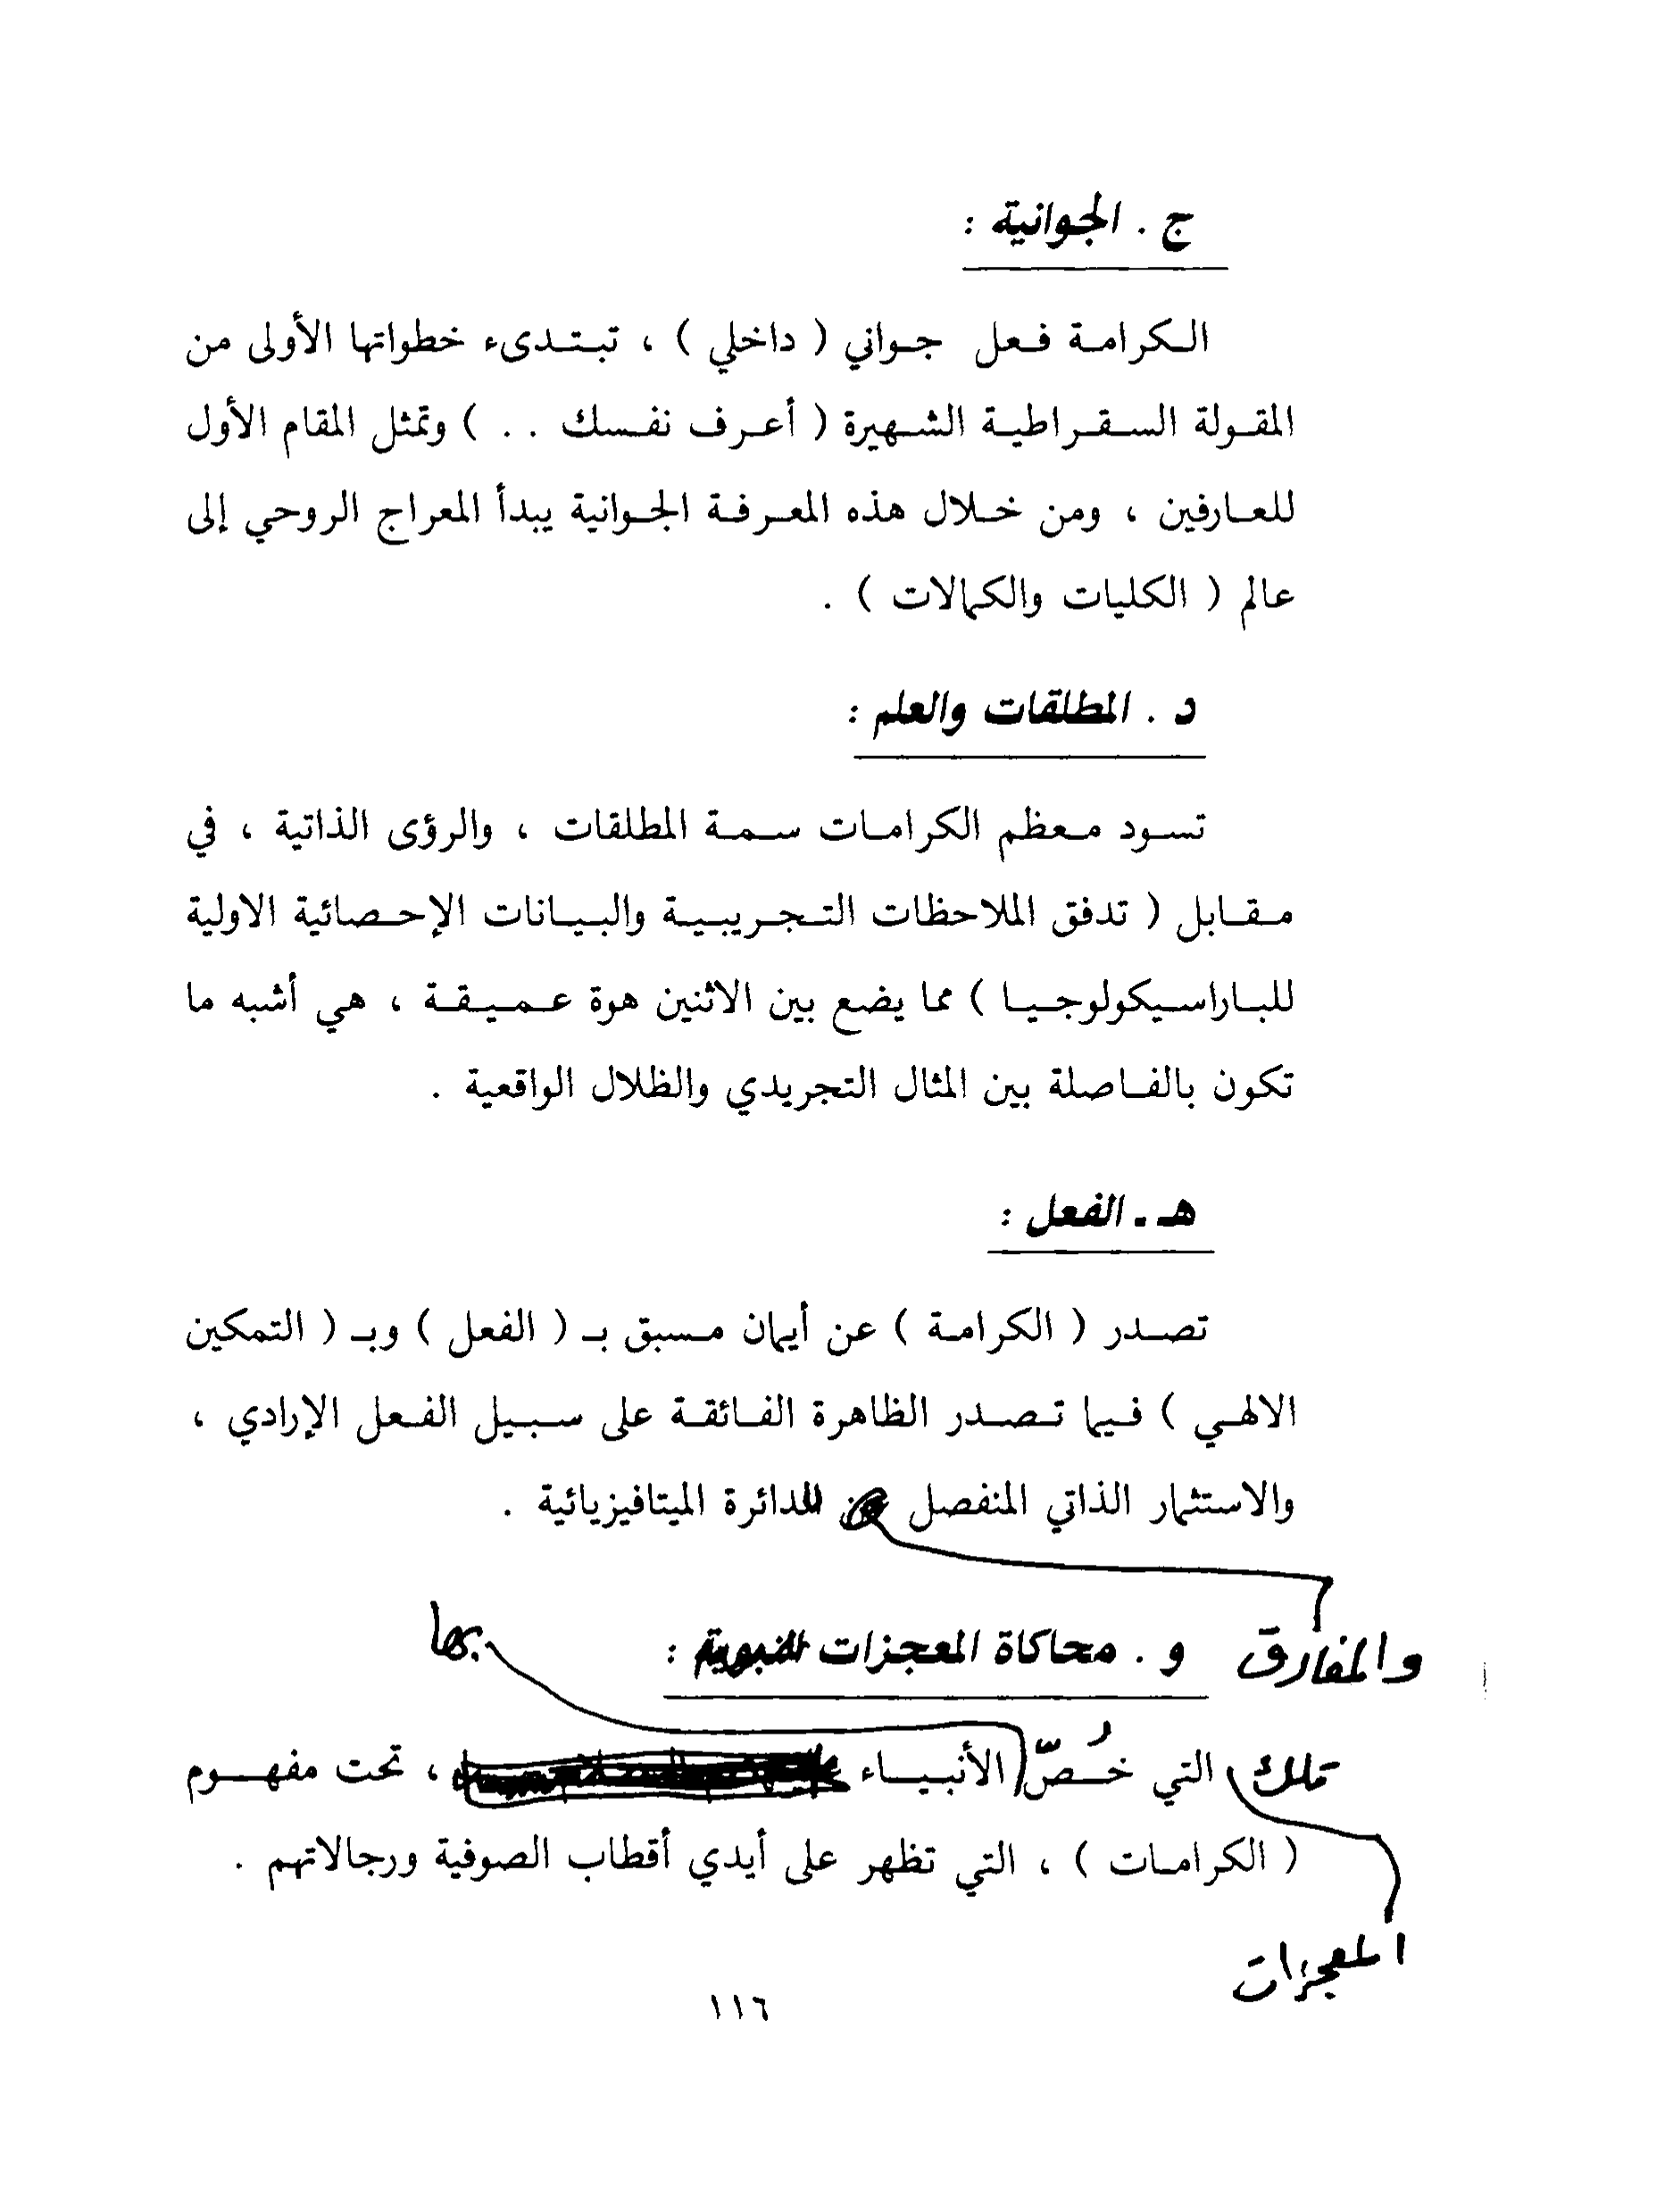 ج . الجوانية :
الكرامة فعل جواني ( داخلي ) ، تبتدىء خطواتها الأولى من
المقولة السقراطية الشهيرة ( أعرف نفسك . . ) وتمثل المقام الأول
للعارفين ، ومن خلال هذه المعرفة الجوانية يبدأ المعراج الروحي إلى
عالم ( الكليات والكمالات ) .
د . المطلقات والعلم :
تسود معظم الكرامات سمة المطلقات ، والرؤى الذاتية ، في
مقابل ( تدفق الملاحظات التجريبية والبيانات الإحصائية الاولية
للباراسيكولوجيا ) مما يضع بين الاثنين هوة عميقة ، هي أشبه ما
تكون بالفاصلة بين المثال التجريدي والظلال الواقعية .
هـ . الفعل :
تصدر ( الكرامة ) عن أيمان مسبق بـ ( الفعل ) وبـ ( التمكين
الالهي ) فيما تصدر الظاهرة الفائقة على سبيل الفعل الإرادي ،
والاستثمار الذاتي المنفصل للدائرة الميتافيزيائية .
والمفارق
و . محاكاة المعجزات النبوية :
بها
تلك التي خُصّ الأنبياء ، تحت مفهوم
( الكرامات ) ، التي تظهر على أيدي أقطاب الصوفية ورجالاتهم .
المعجزات
١١٦